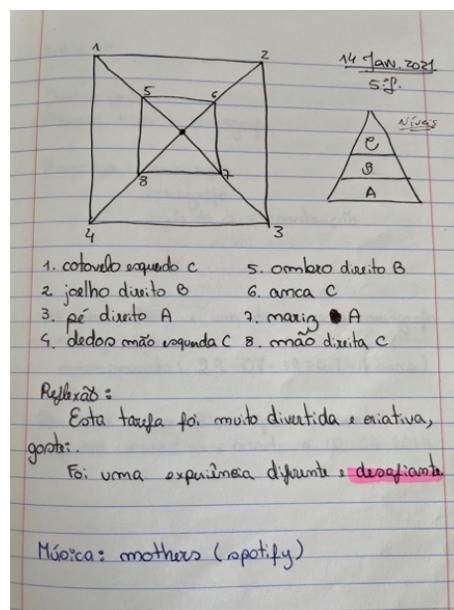 14 Jan. 2021
5ºf.
1
2
5
6
8
7
4
3
Níveis
C
B
A
1. cotovelo esquerdo C
2 joelho direito B
3. pé direito A
4. dedos mão esquerda C
5. ombro direito B
6. anca C
7. nariz A
8. mão direita C
Reflexão:
Esta tarefa foi muito divertida e criativa,
gostei.
Foi uma experiência diferente e desafiante
Música: mothers (spotify)